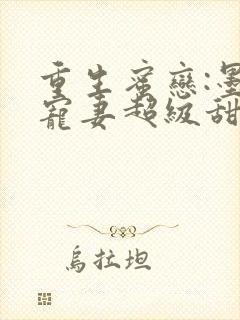 重生蜜戀:墨
寵妻超級甜
烏拉坦